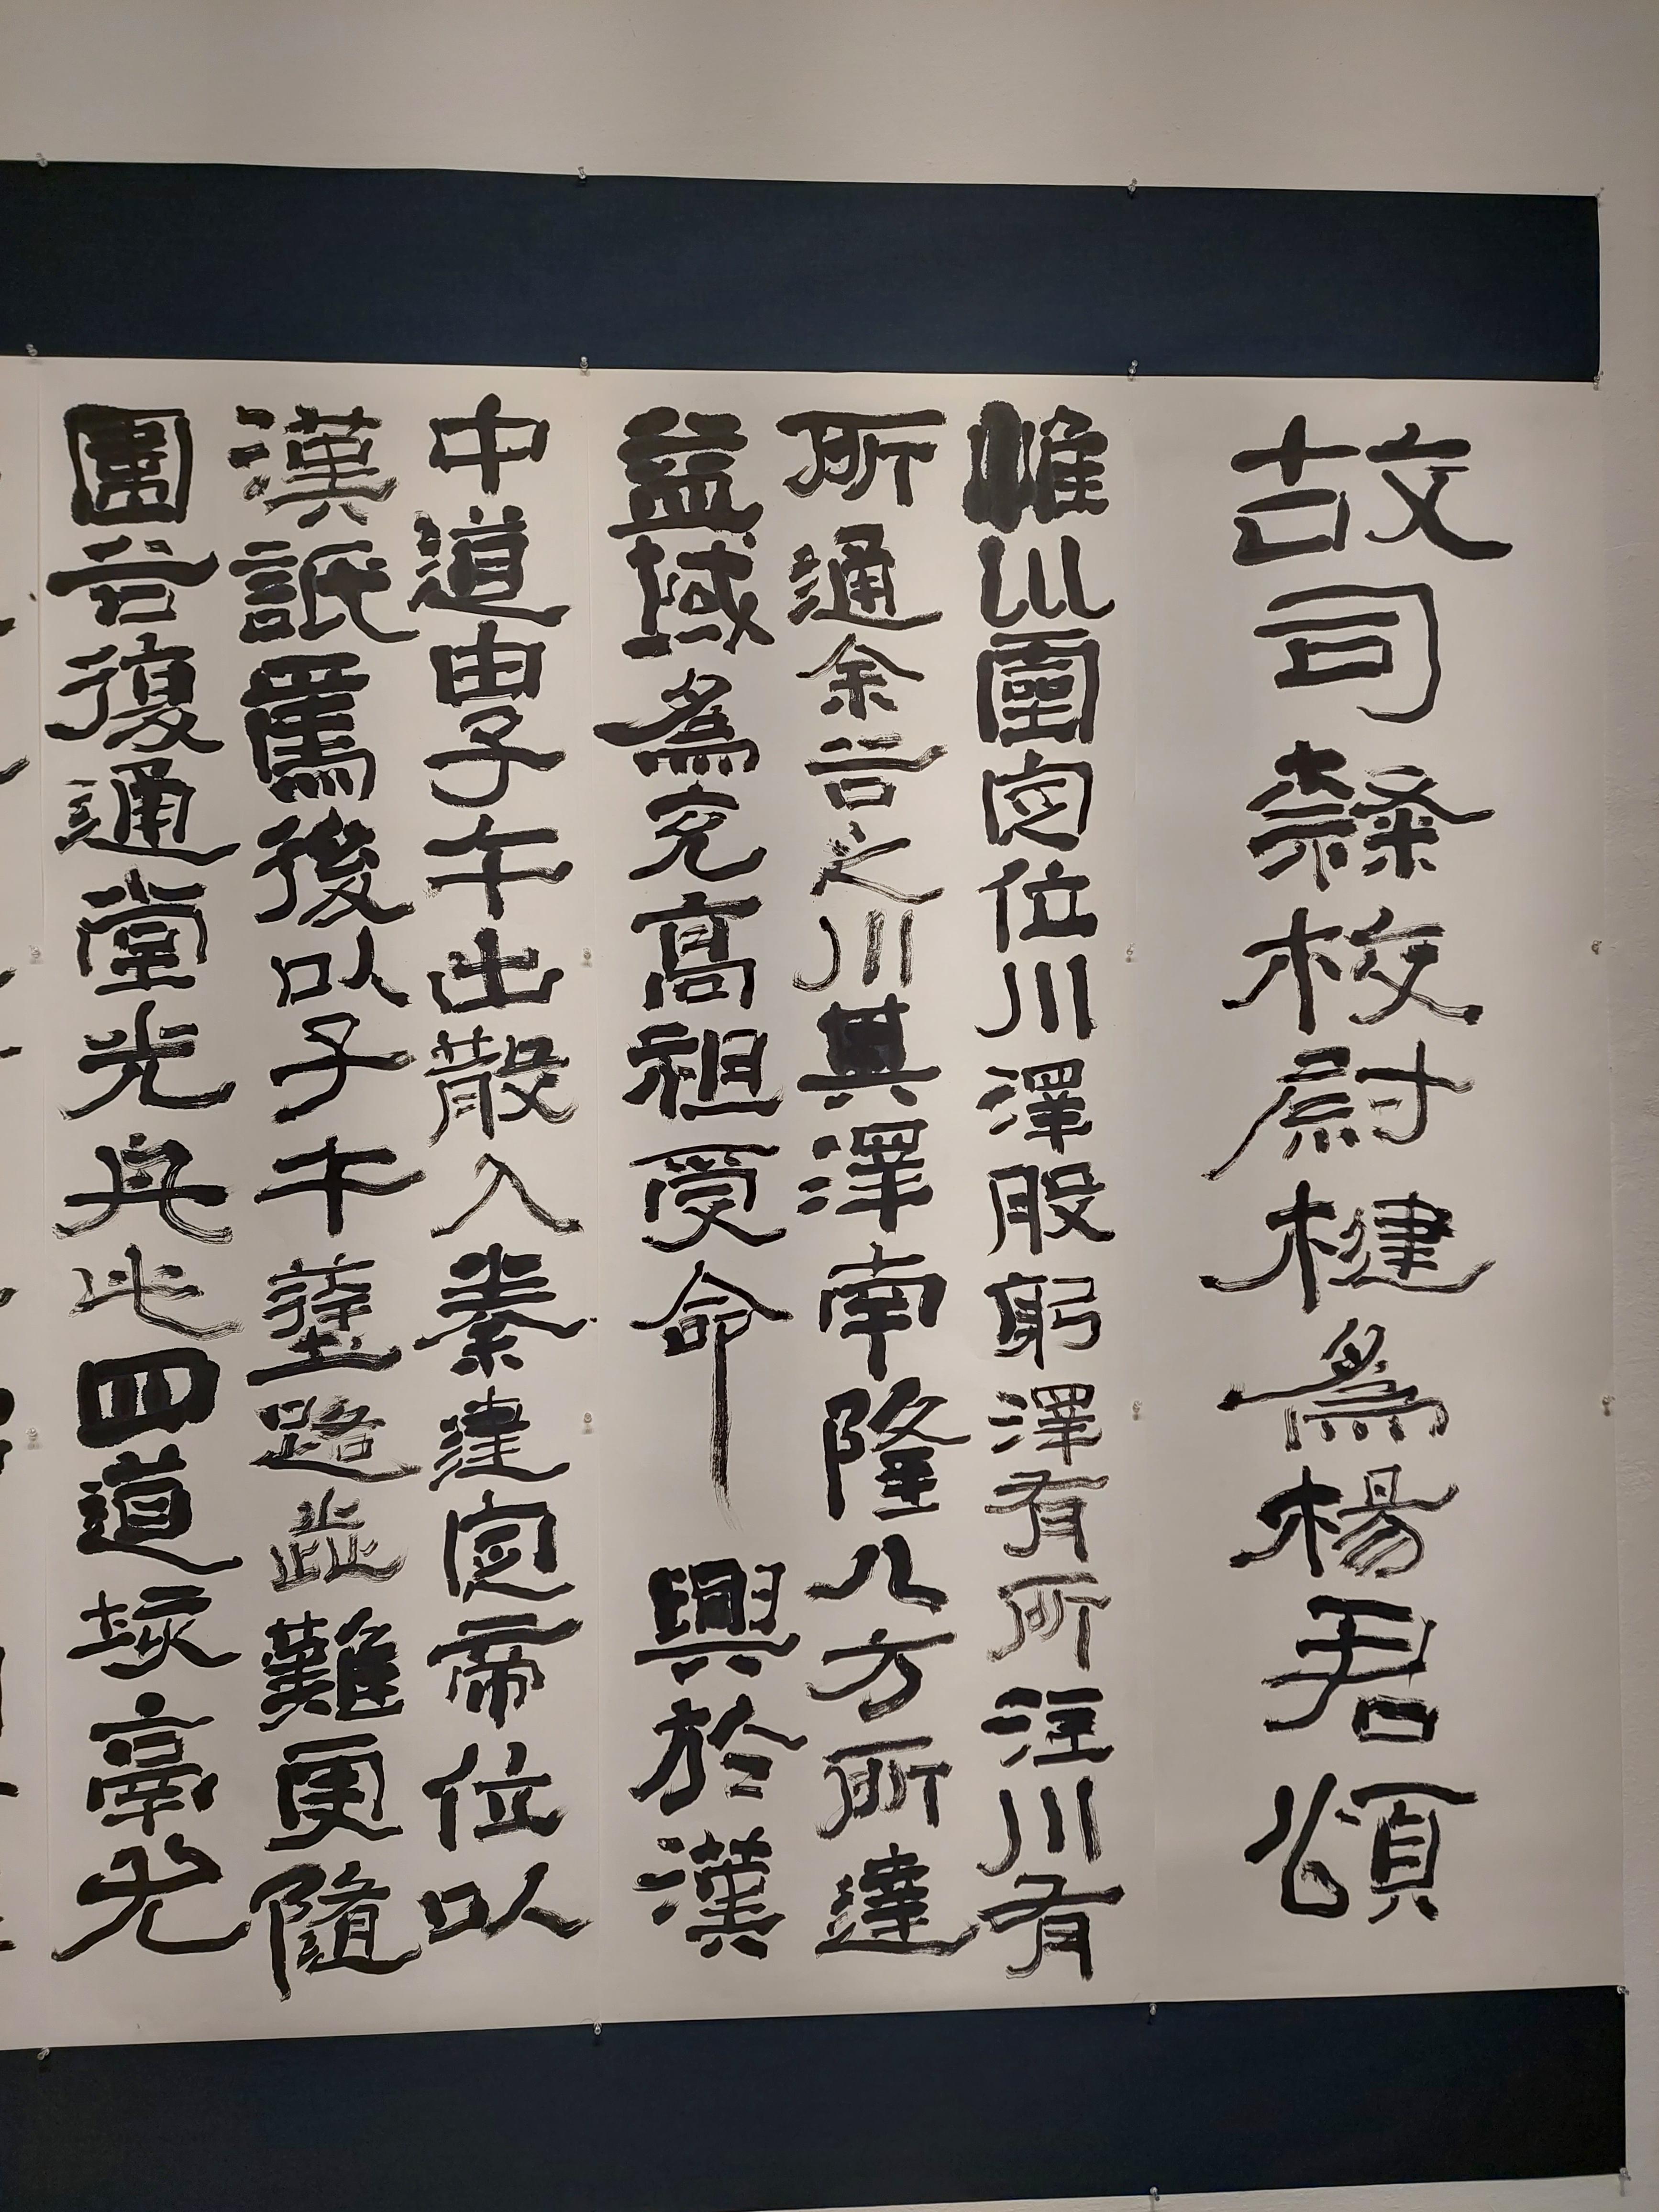 故司隸校尉楗為楊君頌
惟巛靈定位川澤股躬澤有所注川有
所通余谷之川其澤南隆八方所達
益域為充高祖受命興於漢
中道由子午出散入秦建定帝位以
漢詆焉後以子午塗路歰難更隨
圍谷復通堂光凡此四道垓鬲尤